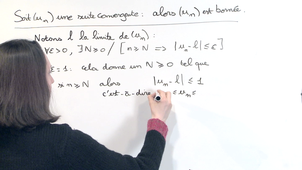 Soit (un) une suite convergente : alors (un) est bornée.
Notons l la limite de (un) :
∀ε>0, ∃N≥0 / [n≥N ⇒ |un-l|≤ε]
ε=1. cela donne un N≥0 tel que
* n≥N alors |un-l|≤1
c'est-à-dire ≤un≤